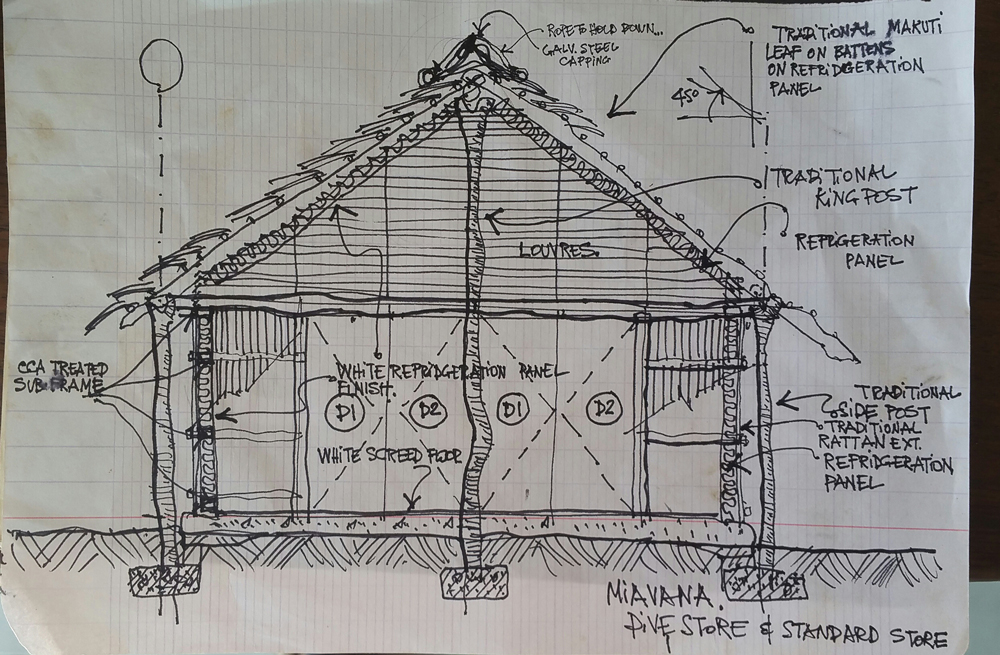 ROPE TO HOLD DOWN...
GALV. STEEL
CAPPING
TRADITIONAL MAKUTI
LEAF ON BATTENS
ON REFRIDGERATION
PANEL
45°
TRADITIONAL
KING POST
REFRIGERATION
PANEL
LOUVRES.
CCA TREATED
SUB FRAME
WHITE REFRIDGERATION PANEL
FINISH.
D1
D2
D1
D2
WHITE SCREED FLOOR
TRADITIONAL
SIDE POST
TRADITIONAL
RATTAN EXT.
REFRIDGERATION
PANEL
MIAVANA.
DIVE STORE & STANDARD STORE